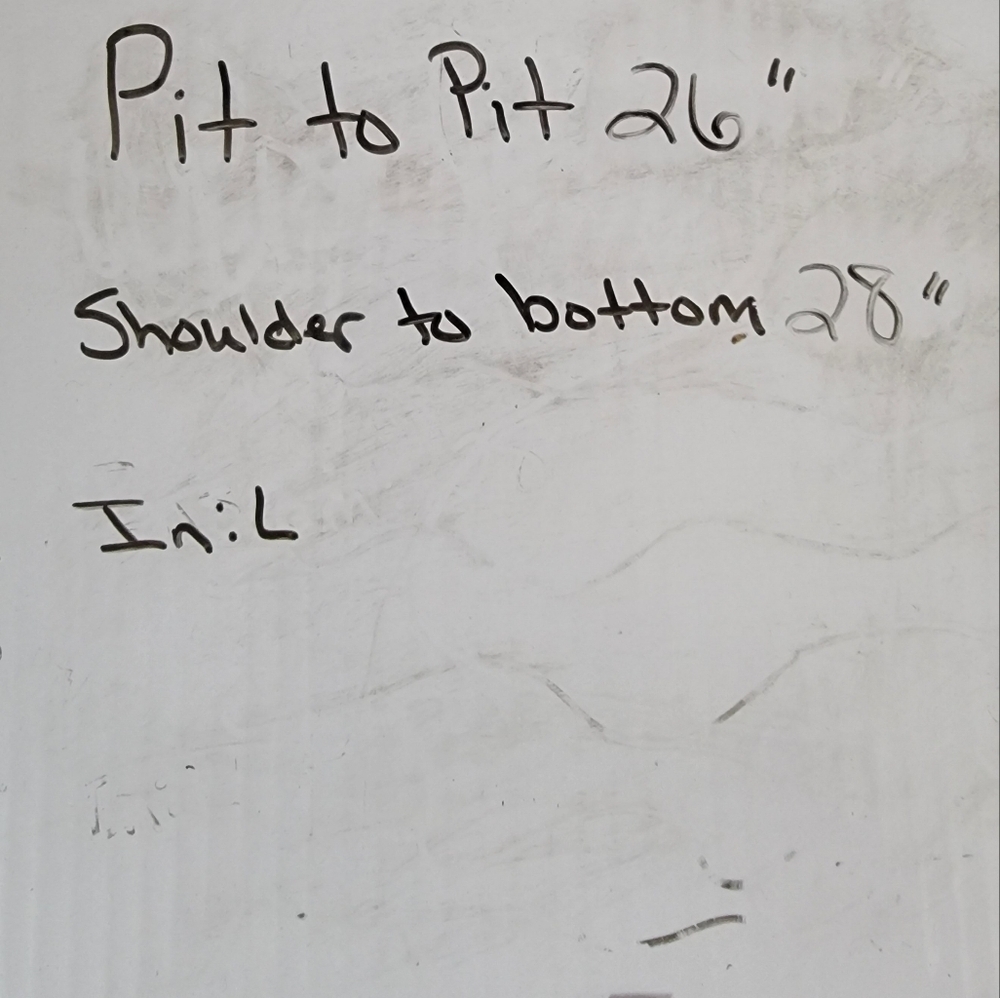 Pit to Pit 26"
Shoulder to bottom 28"
In:L